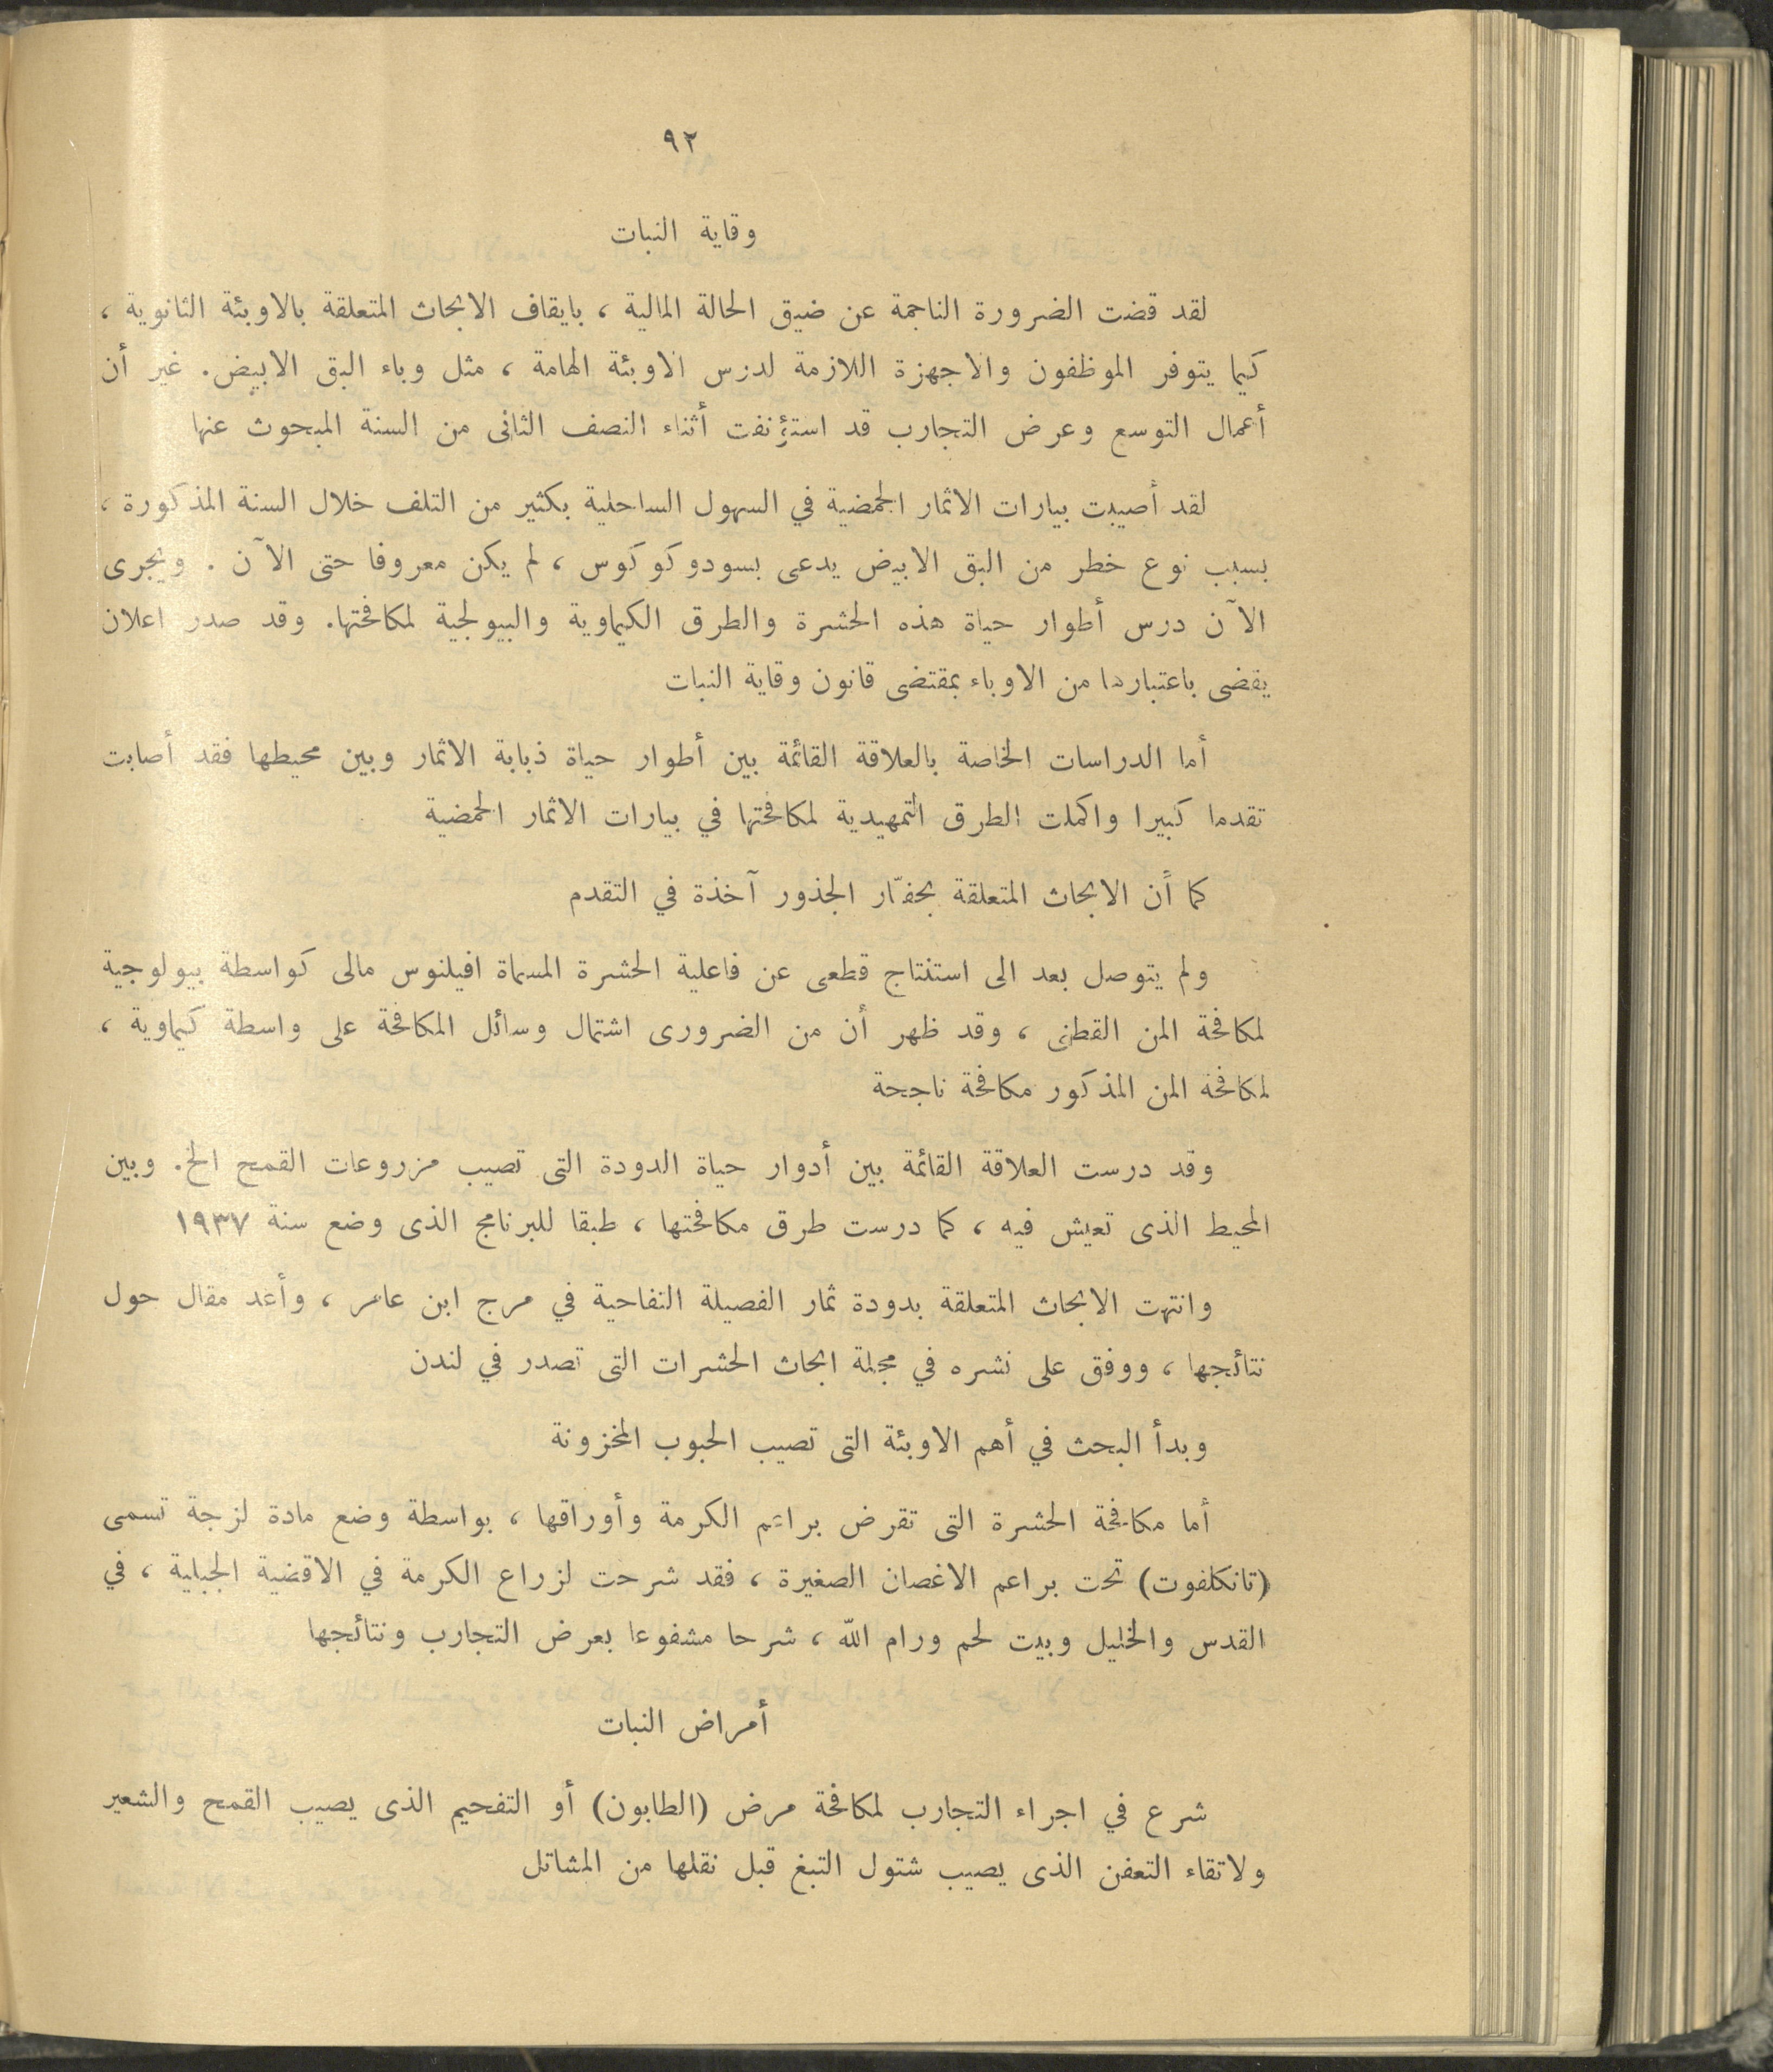 ٩٢
وقاية النبات
لقد قضت الضرورة الناجمة عن ضيق الحالة المالية ، بايقاف الابحاث المتعلقة بالاوبئة الثانوية ،
كيما يتوفر الموظفون والاجهزة اللازمة لدرس الاوبئة الهامة ، مثل وباء البق الابيض. غير أن
أعمال التوسع وعرض التجارب قد استؤنفت أثناء النصف الثانى من السنة المبحوث عنها
لقد أصيبت بيارات الاثمار الحمضية في السهول الساحلية بكثير من التلف خلال السنة المذكورة ،
بسبب نوع خطر من البق الابيض يدعى بسودوكوكوس ، لم يكن معروفا حتى الآن . ويجرى
الآن درس أطوار حياة هذه الحشرة والطرق الكيماوية والبيولجية لمكافحتها. وقد صدر اعلان
يقضى باعتبارها من الاوباء بمقتضى قانون وقاية النبات
أما الدراسات الخاصة بالعلاقة القائمة بين أطوار حياة ذبابة الاثمار وبين محيطها فقد أصابت
تقدما كبيرا واكملت الطرق التمهيدية لمكافحتها في بيارات الاثمار الحمضية
كما أن الابحاث المتعلقة بحفّار الجذور آخذة في التقدم
ولم يتوصل بعد الى استنتاج قطعى عن فاعلية الحشرة المسماة افيلنوس مالى كواسطة بيولوجية
لمكافحة المن القطنى ، وقد ظهر أن من الضرورى اشتمال وسائل المكافحة على واسطة كيماوية ،
لمكافحة المن المذكور مكافحة ناجحة
وقد درست العلاقة القائمة بين أدوار حياة الدودة التى تصيب مزروعات القمح الخ. وبين
المحيط الذى تعيش فيه ، كما درست طرق مكافحتها ، طبقا للبرنامج الذى وضع سنة ١٩٣٧
وانتهت الابحاث المتعلقة بدودة ثمار الفصيلة التفاحية في مرج ابن عامر ، وأعد مقال حول
نتائجها ، ووفق على نشره في مجلة ابحاث الحشرات التى تصدر في لندن
وبدأ البحث في أهم الاوبئة التى تصيب الحبوب المخزونة
أما مكافحة الحشرة التى تقرض براعم الكرمة وأوراقها ، بواسطة وضع مادة لزجة تسمى
(تانكلفوت) تحت براعم الاغصان الصغيرة ، فقد شرحت لزراع الكرمة في الاقضية الجبلية ، في
القدس والخليل وبيت لحم ورام الله ، شرحا مشفوعا بعرض التجارب ونتائجها
أمراض النبات
شرع في اجراء التجارب لمكافحة مرض (الطابون) أو التفحيم الذى يصيب القمح والشعير
ولاتقاء التعفن الذى يصيب شتول التبغ قبل نقلها من المشاتل